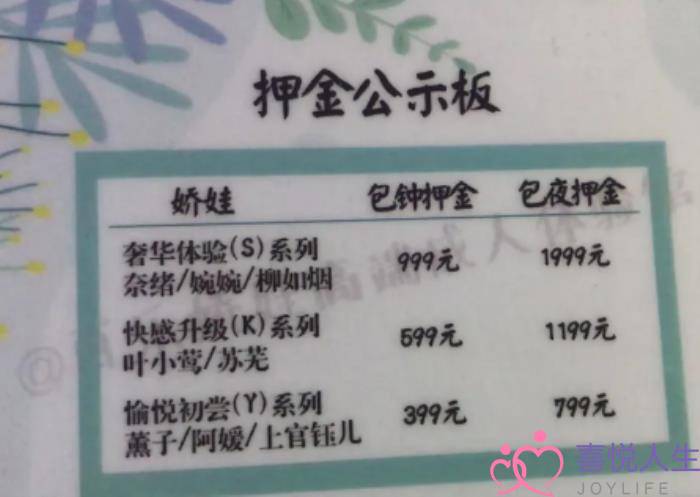 押金公示板
娇娃 包钟押金 包夜押金
奢华体验(S)系列
奈绪/婉婉/柳如烟 999元 1999元
快感升级(K)系列
叶小莺/苏芜 599元 1199元
愉悦初尝(Y)系列
薰子/阿嫒/上官钰儿 399元 799元
喜悦人生
JOYLIFE